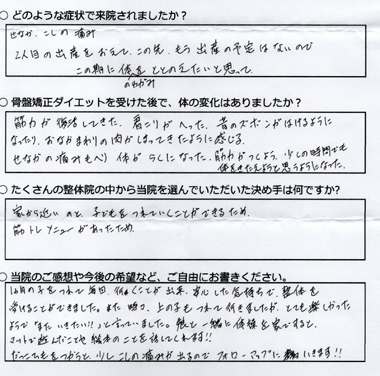 ○ どのような症状で来院されましたか？
せなか、こしの痛み
2人目の出産をおえて、この先、もう出産の予定はないので
この期に体をととのえたいと思って。
のゆがみ
○ 骨盤矯正ダイエットを受けた後で、体の変化はありましたか？
筋力が復活してきた。肩こりがへった。昔のズボンがはけるように
なったり、おなかまわりの肉がしまってきたように感じる。
せなかの痛みもへり 体がらくになった。筋力がつくよう、少しの時間でも
体をきたえようと思うようになった。
○ たくさんの整体院の中から当院を選んでいただいた決め手は何ですか？
家から近いのと、子どもをつれていくことができるため。
筋トレメニューがあったため。
○ 当院のご感想や今後の希望など、ご自由にお書きください。
の子をつれて毎回、行くことが出来、安心した気持ちで、整体を
受けることができました。また 時々、上の子もつれて行きましたが、とても楽しかった
ようで「また いきたい!!」と言っていました。私と一緒に体操を家ですると、
マットで遊んだことや絵本のことを話してくれます!!
だっこひもをつかうと、少しこしの痛みが出るので フォローアップに いきます!!